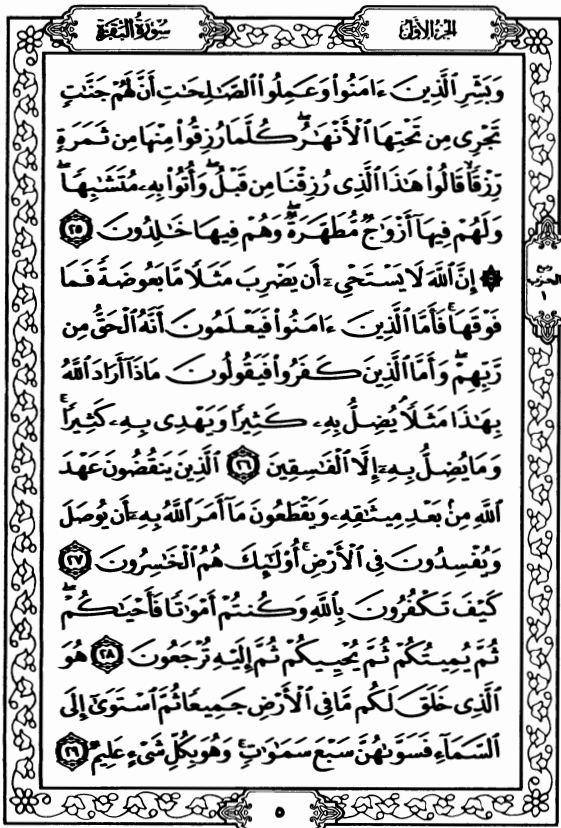 سُورَةُ البَقَرَةِ
الجُزْءُ الأَوَّلُ
وَبَشِّرِ ٱلَّذِينَ ءَامَنُوا۟ وَعَمِلُوا۟ ٱلصَّـٰلِحَـٰتِ أَنَّ لَهُمْ جَنَّـٰتٍ
تَجْرِى مِن تَحْتِهَا ٱلْأَنْهَـٰرُ ۖ كُلَّمَا رُزِقُوا۟ مِنْهَا مِن ثَمَرَةٍ
رِّزْقًا ۙ قَالُوا۟ هَـٰذَا ٱلَّذِى رُزِقْنَا مِن قَبْلُ ۖ وَأُتُوا۟ بِهِۦ مُتَشَـٰبِهًا ۖ
وَلَهُمْ فِيهَآ أَزْوَٰجٌ مُّطَهَّرَةٌ ۖ وَهُمْ فِيهَا خَـٰلِدُونَ ٢٥
۞ إِنَّ ٱللَّهَ لَا يَسْتَحْىِۦٓ أَن يَضْرِبَ مَثَلًا مَّا بَعُوضَةً فَمَا
فَوْقَهَا ۚ فَأَمَّا ٱلَّذِينَ ءَامَنُوا۟ فَيَعْلَمُونَ أَنَّهُ ٱلْحَقُّ مِن
رَّبِّهِمْ ۖ وَأَمَّا ٱلَّذِينَ كَفَرُوا۟ فَيَقُولُونَ مَاذَآ أَرَادَ ٱللَّهُ
بِهَـٰذَا مَثَلًا ۘ يُضِلُّ بِهِۦ كَثِيرًا وَيَهْدِى بِهِۦ كَثِيرًا ۚ
وَمَا يُضِلُّ بِهِۦٓ إِلَّا ٱلْفَـٰسِقِينَ ٢٦ ٱلَّذِينَ يَنقُضُونَ عَهْدَ
ٱللَّهِ مِنۢ بَعْدِ مِيثَـٰقِهِۦ وَيَقْطَعُونَ مَآ أَمَرَ ٱللَّهُ بِهِۦٓ أَن يُوصَلَ
وَيُفْسِدُونَ فِى ٱلْأَرْضِ ۚ أُو۟لَـٰٓئِكَ هُمُ ٱلْخَـٰسِرُونَ ٢٧
كَيْفَ تَكْفُرُونَ بِٱللَّهِ وَكُنتُمْ أَمْوَٰتًا فَأَحْيَـٰكُمْ ۖ
ثُمَّ يُمِيتُكُمْ ثُمَّ يُحْيِيكُمْ ثُمَّ إِلَيْهِ تُرْجَعُونَ ٢٨ هُوَ
ٱلَّذِى خَلَقَ لَكُم مَّا فِى ٱلْأَرْضِ جَمِيعًا ثُمَّ ٱسْتَوَىٰٓ إِلَى
ٱلسَّمَآءِ فَسَوَّىٰهُنَّ سَبْعَ سَمَـٰوَٰتٍ ۚ وَهُوَ بِكُلِّ شَىْءٍ عَلِيمٌ ٢٩
ربع
الحزب
١
٥